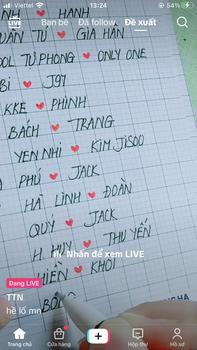 Viettel 13:24
LIVE Bạn bè Đã follow Đề xuất
NH ❤ HẠNH
TUẤN TÚ ❤ GIA HÂN
TỰ PHONG ❤ ONLY ONE
Bi ❤ J97
KKE ❤ PHÌNH
BÁCH ❤ TRANG
YẾN NHI ❤ KIM JISOO
PHÚ ❤ JACK
HÀ LINH ❤ ĐOÀN
QUÝ ❤ JACK
H HUY ❤ THU YẾN
Nhấn để xem LIVE
HIỀN ❤ KHÔI
Đang LIVE
TTN
hề lố mn
Trang chủ Cửa hàng Hộp thư Hồ sơ